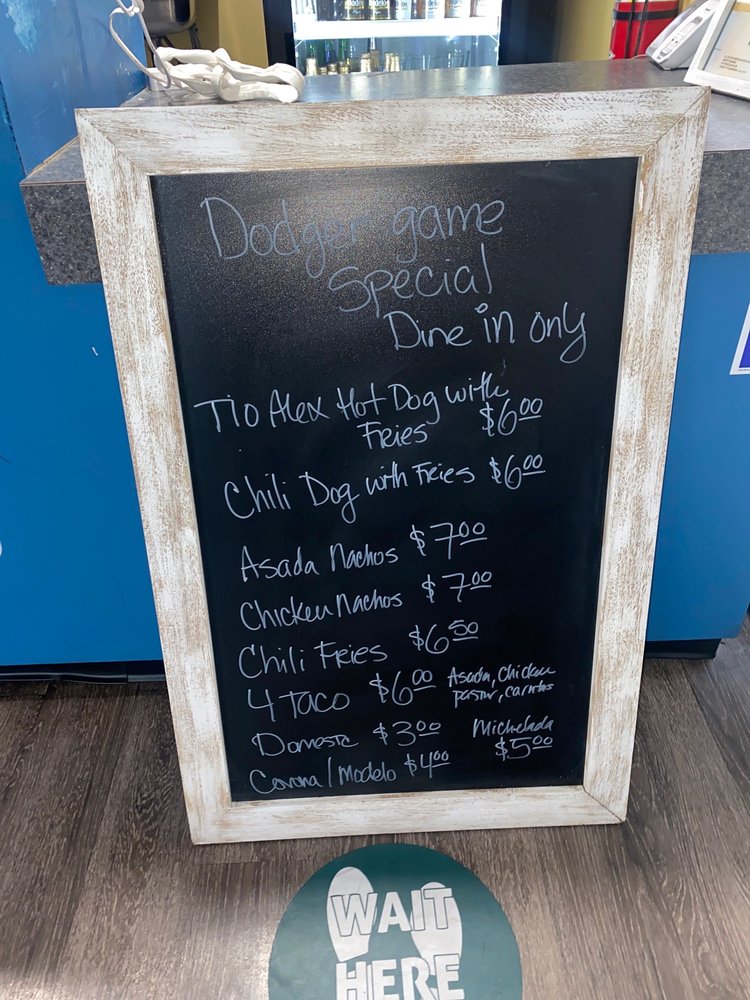 Dodger game
Special
Dine in only
Tio Alex Hot Dog with
Fries $6.00
Chili Dog with Fries $6.00
Asada Nachos $7.00
Chicken Nachos $7.00
Chili Fries $6.50
4 Taco $6.00 Asada, Chicken
pastor, carnitas
Domestic $3.00 Michelada
$5.00
Corona/Modelo $4.00
WAIT
HERE